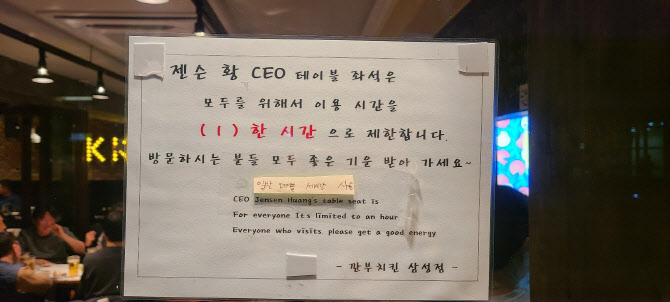 젠슨 황 CEO 테이블 좌석은
모두를 위해서 이용 시간을
(1) 한 시간 으로 제한합니다.
방문하시는 분들 모두 좋은 기운 받아 가세요~
CEO Jensen Huang's table seat is
For everyone It's limited to an hour
Everyone who visits, please get a good energy
- 깐부치킨 삼성점 -